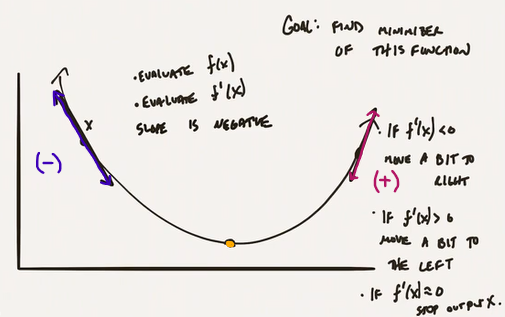 GOAL: FIND MINIMIZER
OF THIS FUNCTION
• EVALUATE f(x)
• EVALUATE f'(x)
SLOPE IS NEGATIVE
x
(-)
(+)
• IF f'(x) < 0
MOVE A BIT TO
RIGHT
• IF f'(x) > 0
MOVE A BIT TO
THE LEFT
• IF f'(x) ≈ 0
STOP OUTPUT X.